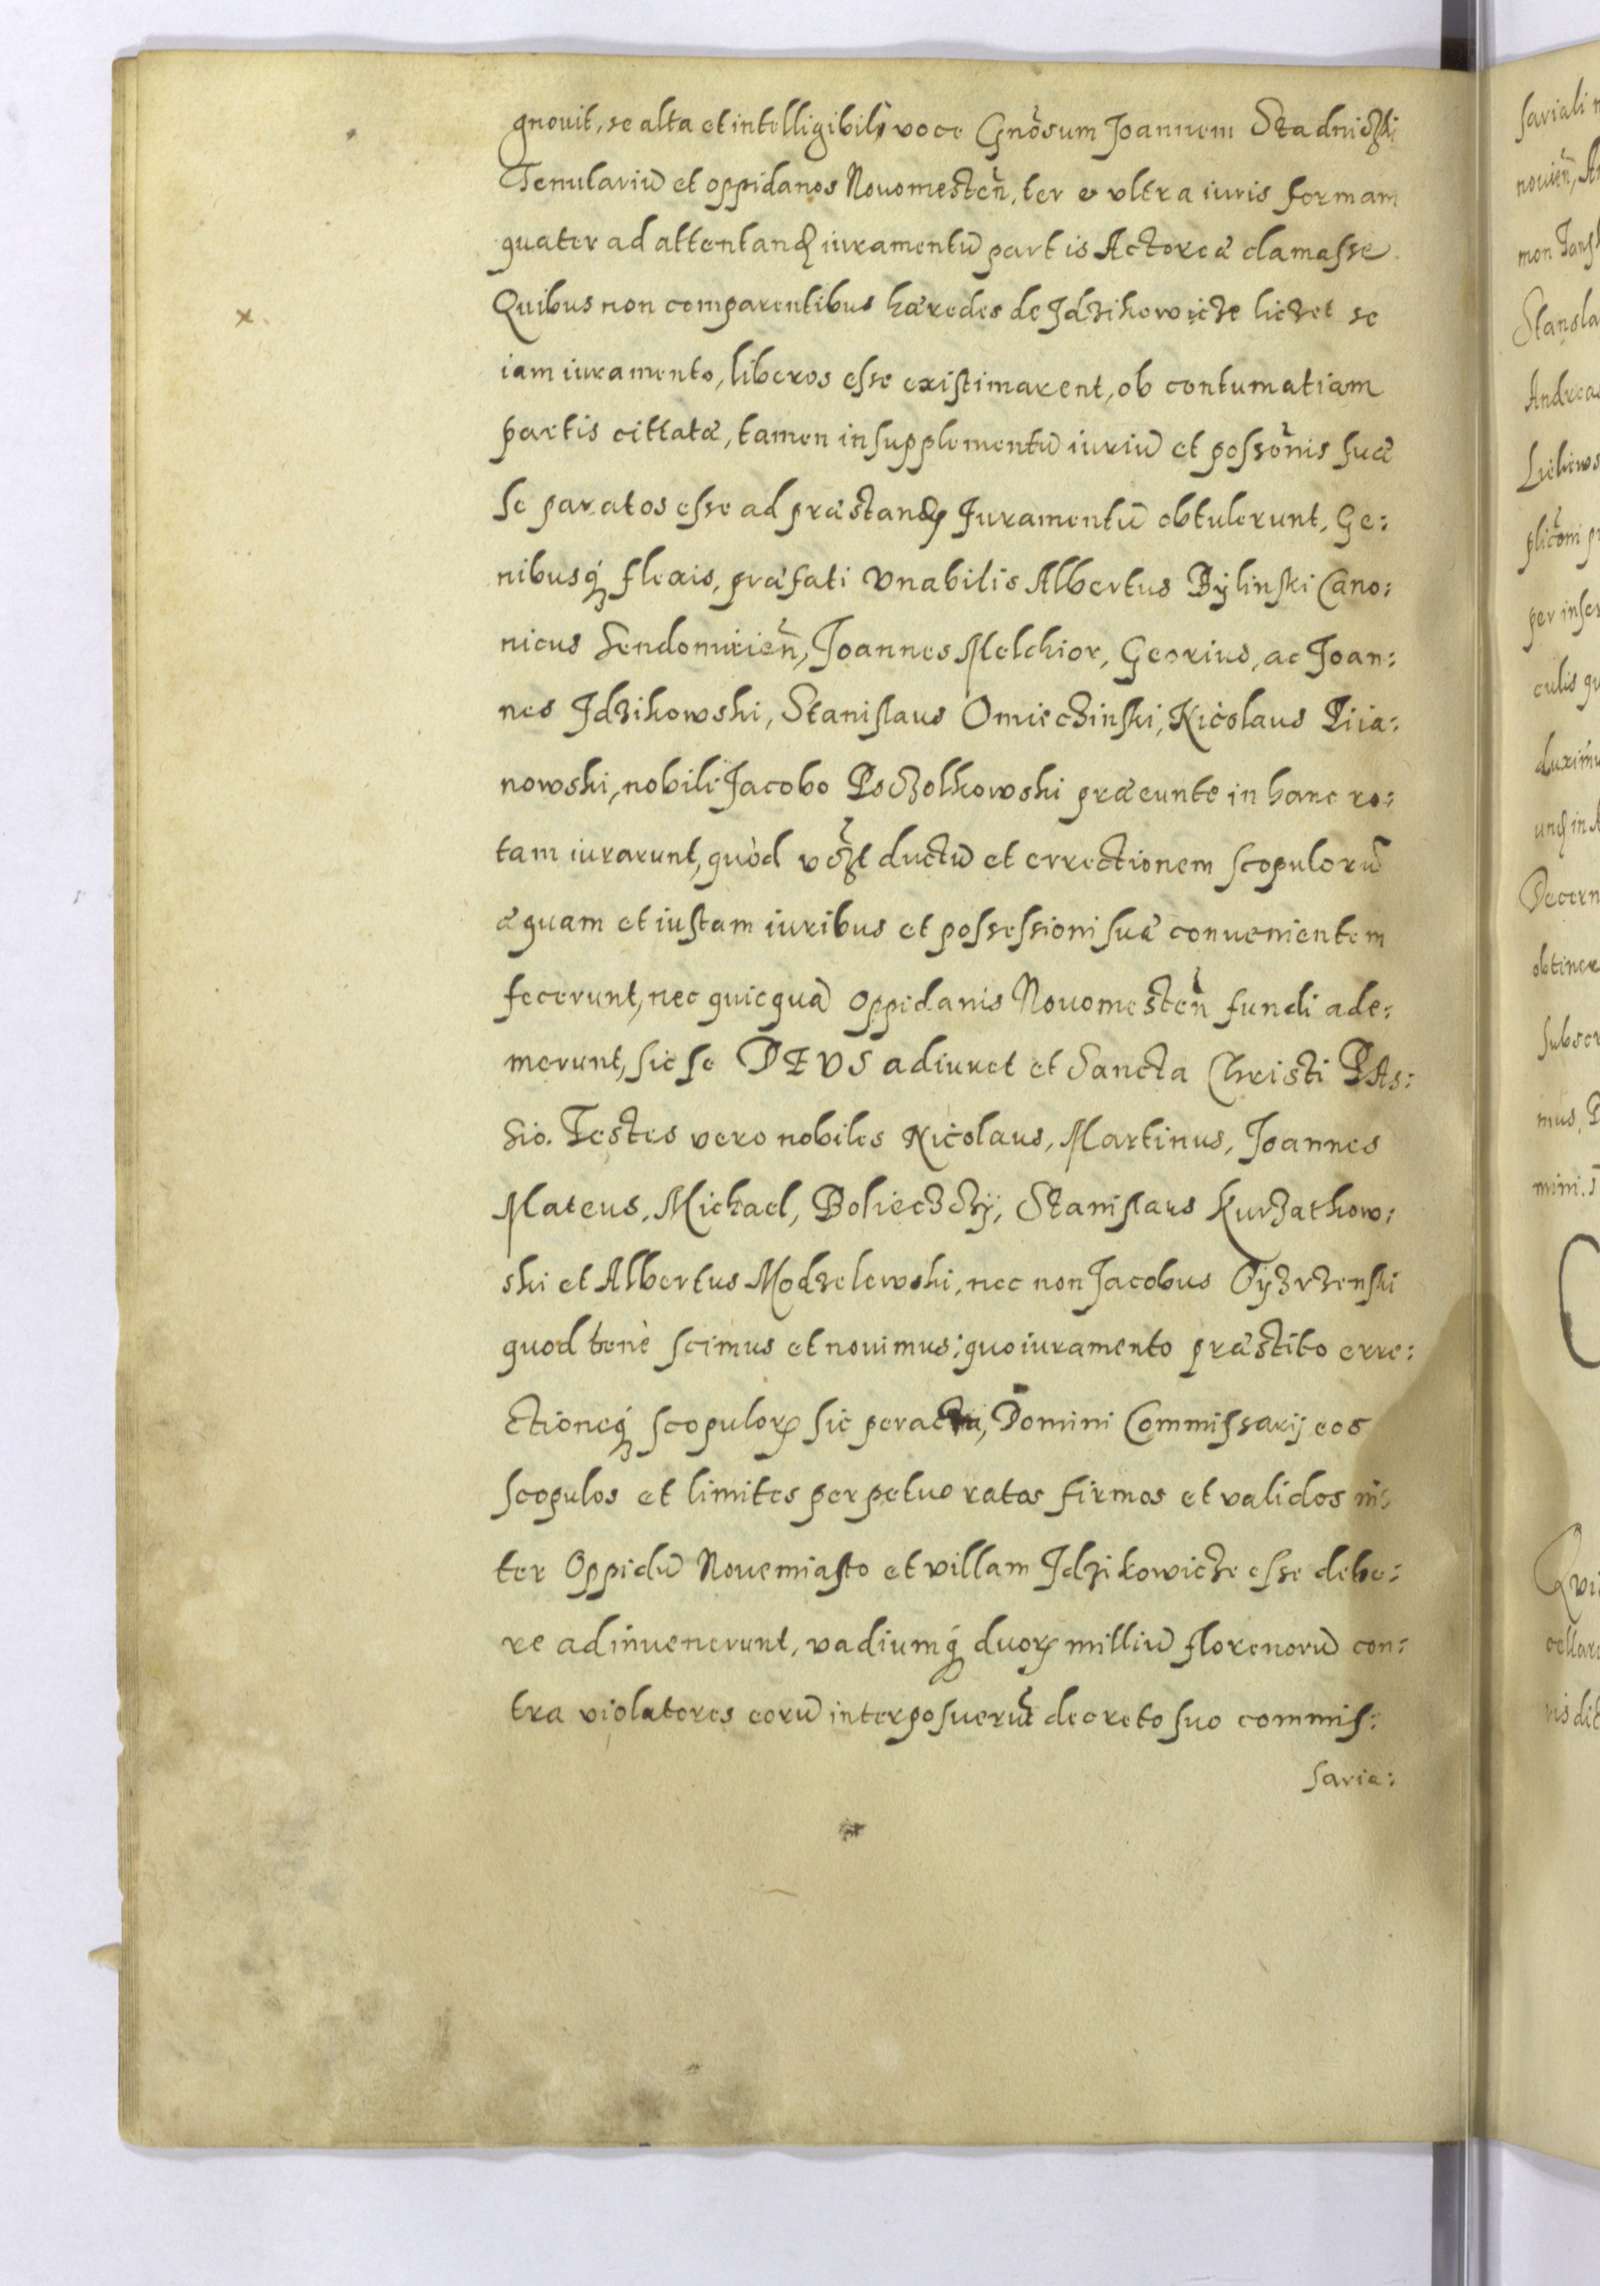 gnovit, se alta et intelligibili voce Gnõsum Joannem Stadniczki
Tenutariũ et oppidanos Novomesteñ, ter e ultra iuris formam
quater ad attentandꝝ iuramentũ partis Actoreæ clamasse.
Quibus non comparentibus hæredes de Jdzikowicze liczet se
iam iuramento, liberos esse existimarent, ob contumatiam
partis cittatæ, tamen in supplementũ iuriũ et possõnis suæ
se paratos esse ad præstandꝝ Juramentũ obtulerunt, Ge:
nibusq́ꝫ flexis, præfati Vnabilis Albertus Bÿlinski Cano:
nicus Sendomirieñ, Joannes Melchior, Georius, ac Joan:
nes Jdzikowski, Stanislaus Omieczinski, Nicolaus Piia:
nowski, nobili Jacobo Psczolkowski præeunte in hanc ro:
tam iurarunt, quòd ductũ et errectionem scopulorũ
æquam et iustam iuribus et possessioni suæ convenientem
fecerunt, nec quicquã oppidanis Novomesteñ fundi ade:
merunt, sic se DEVS adiuvet et Sancta Christi PAs:
sio. Testes vero nobiles Nicolaus, Martinus, Joannes
Mateus, Michael, Bolieczczÿ, Stanislaus Kurzathow:
ski et Albertus Modzelewski, nec non Jacobus
quod benè scimus et novimus; quo iuramento præstito erre:
ctioneq́ꝫ scopulorꝝ sic peracta, Domini Commissarij eos
scopulos et limites perpetuo ratos firmos et validos in:
ter Oppidũ Novemiasto et villam Jdzikowicze esse debe:
re adinvenerunt, vadiumq́ꝫ duorꝝ milliũ florenorũ con:
tra violatores eorũ interposuerũt decreto suo commis:
saria: